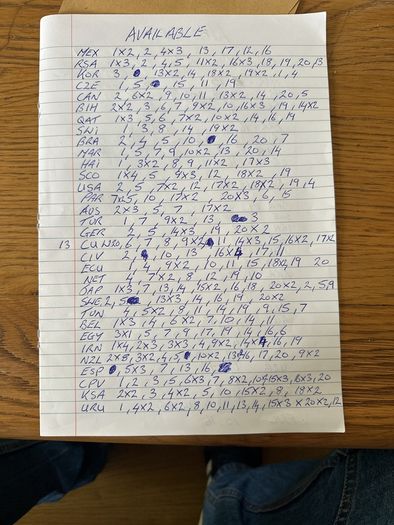 AVAILABLE
MEX 1x2, 2, 4x3, 13, 17, 12, 16
RSA 1x3, 2, 4, 5, 11x2, 16x3, 18, 19, 20, 13
KOR 3, 13x2, 14, 18x2, 19x2, 1, 4
CZE 1, 5, 15, 11, 19
CAN 2, 6x2, 9, 10, 11, 13x2, 14, 20, 5
BIH 2x2, 3, 6, 7, 9x2, 10, 16x3, 19, 14x2
QAT 1x3, 5, 6, 7x2, 10x2, 14, 16, 19
SWI 1, 3, 8, 14, 19x2
BRA 2, 4, 5, 10, 16, 20, 7
MAR 1, 5, 7, 9, 10x2, 13, 20, 14
HAI 1, 3x2, 8, 9, 11x2, 17x3
SCO 1x4, 5, 9x3, 12, 18x2, 19
USA 2, 5, 7x2, 12, 17x2, 18x2, 19, 4
PAR 7x5, 10, 17x2, 20x3, 6, 15
AUS 2x3, 5, 7, 17x2
TUR 1, 7, 9x2, 13, 3
GER 2, 5, 14x3, 19, 20x2
13 CUW 20, 6, 7, 8, 9x2, 11, 14x3, 15, 16x2, 17x2
CIV 2, 10, 13, 16x4, 17, 11
ECU 1, 4, 9x2, 10, 11, 15, 18x2, 19 20
NET 4, 7x2, 8, 12, 19, 10
JAP 1x3, 7, 13, 14, 15x2, 16, 18, 20x2, 2, 5, 9
SWE 2, 5, 13x3, 14, 16, 19, 20x2
TUN 4, 5x2, 8, 11, 14, 19, 9, 15, 7
BEL 1x3, 4, 6x2, 7, 10, 14, 11
EGY 3x1, 5, 7, 9, 17, 19, 14, 16, 6
IRN 1x4, 2x3, 3x3, 4, 9x2, 14x4, 16, 19
NZL 2x8, 3x2, 4, 5, 10x2, 13, 16, 17, 20, 9x2
ESP 5x3, 7, 13, 16,
CPV 1, 2, 3, 5, 6x3, 7, 8x2, 10, 15x3, 16x3, 20
KSA 2x2, 3, 4x2, 5, 10, 15x2, 8, 18x2
URU 1, 4x2, 6x2, 8, 10, 11, 13, 14, 15x3 x 20x2, 12